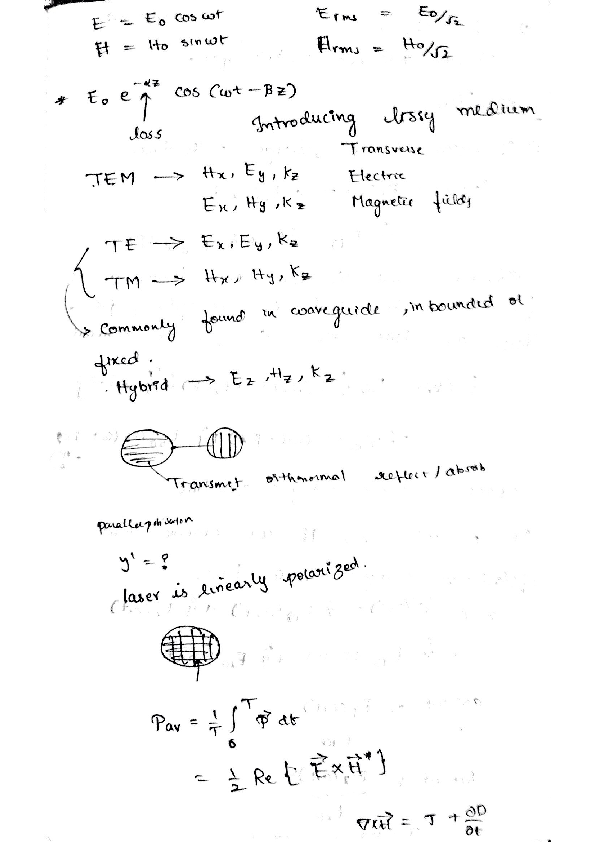 E = E₀ cos ωt    Erms = E₀/√2
H = H₀ sin ωt    Hrms = H₀/√2
* E₀ e^-αz cos (ωt - βz)
loss    Introducing lossy medium
Transverse
TEM → Hx, Ey, Kz    Electric
Ex, Hy, Kz    Magnetic fields
TE → Ex, Ey, Kz
TM → Hx, Hy, Kz
Commonly found in waveguide, in bounded or
fixed.
Hybrid → Ez, Hz, Kz
Transmit orthnormal reflect / absorb
y' = ?
laser is linearly polarized.
Pav = 1/T ∫₀^T P⃗ dt
= 1/2 Re { E⃗ x H⃗* }
∇xH⃗ = J + ∂D/∂t